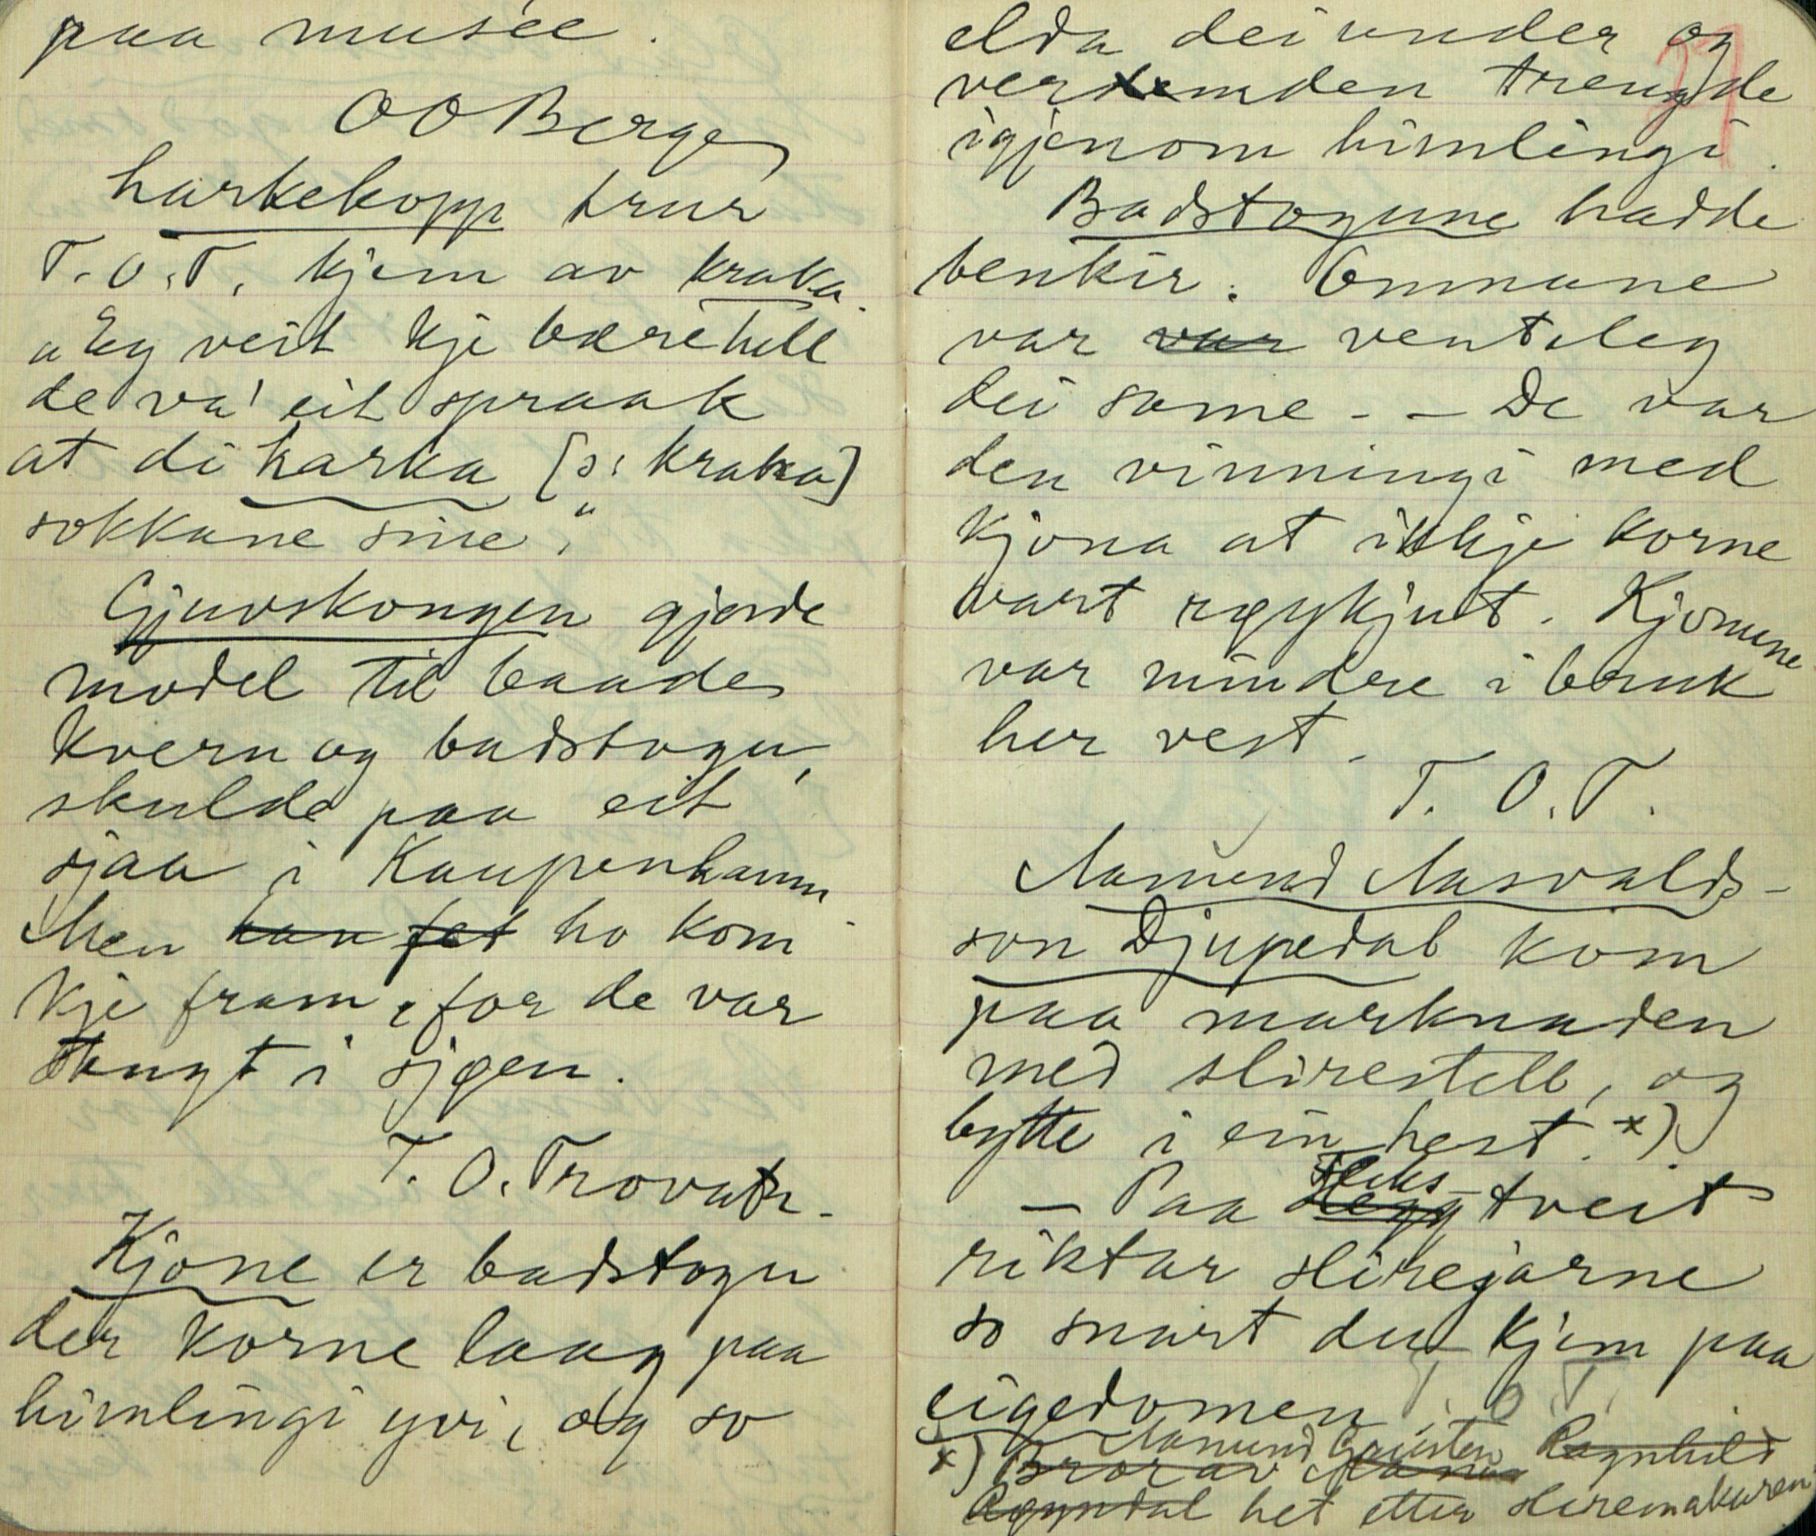 paa musée.
O O Berge
harkekopp trur
T. O. T. kjem av kraka.
"Eg veit kje bære hell
de va' eit spraak
at di harka [ɔ: kraka]
sokkane sine".
Gjuvskongen gjorde
model til baade
kvern og badstogu,
skulde paa eit
sjaa i Kaupenhamn.
Men han fek ho kom
kje fram, for de var
stengt i sjøen.
T. O. Trovatn.
Kjone er badstogu
der korne laag paa
himlingi yvi, og so
elda dei under og
vermden trengde
igjenom himlingi.
Badstogune hadde
benkir. Omnane
var var venteleg
dei same - - De var
den vinningi med
kjona at ikkje korne
vart røykjut. Kjonune
var mindre i bruk
her vest.
T. O. T.
Aamund Aasvalds-
son Djupedal kom
paa marknaden
med slirestell, og
bytte i ein hest. x)
- Paa Heggtveit
riktar slirejarne
so snart du kjem paa
eigedomen. T. O. T.
x) Aamund Grusten Ragnhild
Bror av
het etter sliremakaren